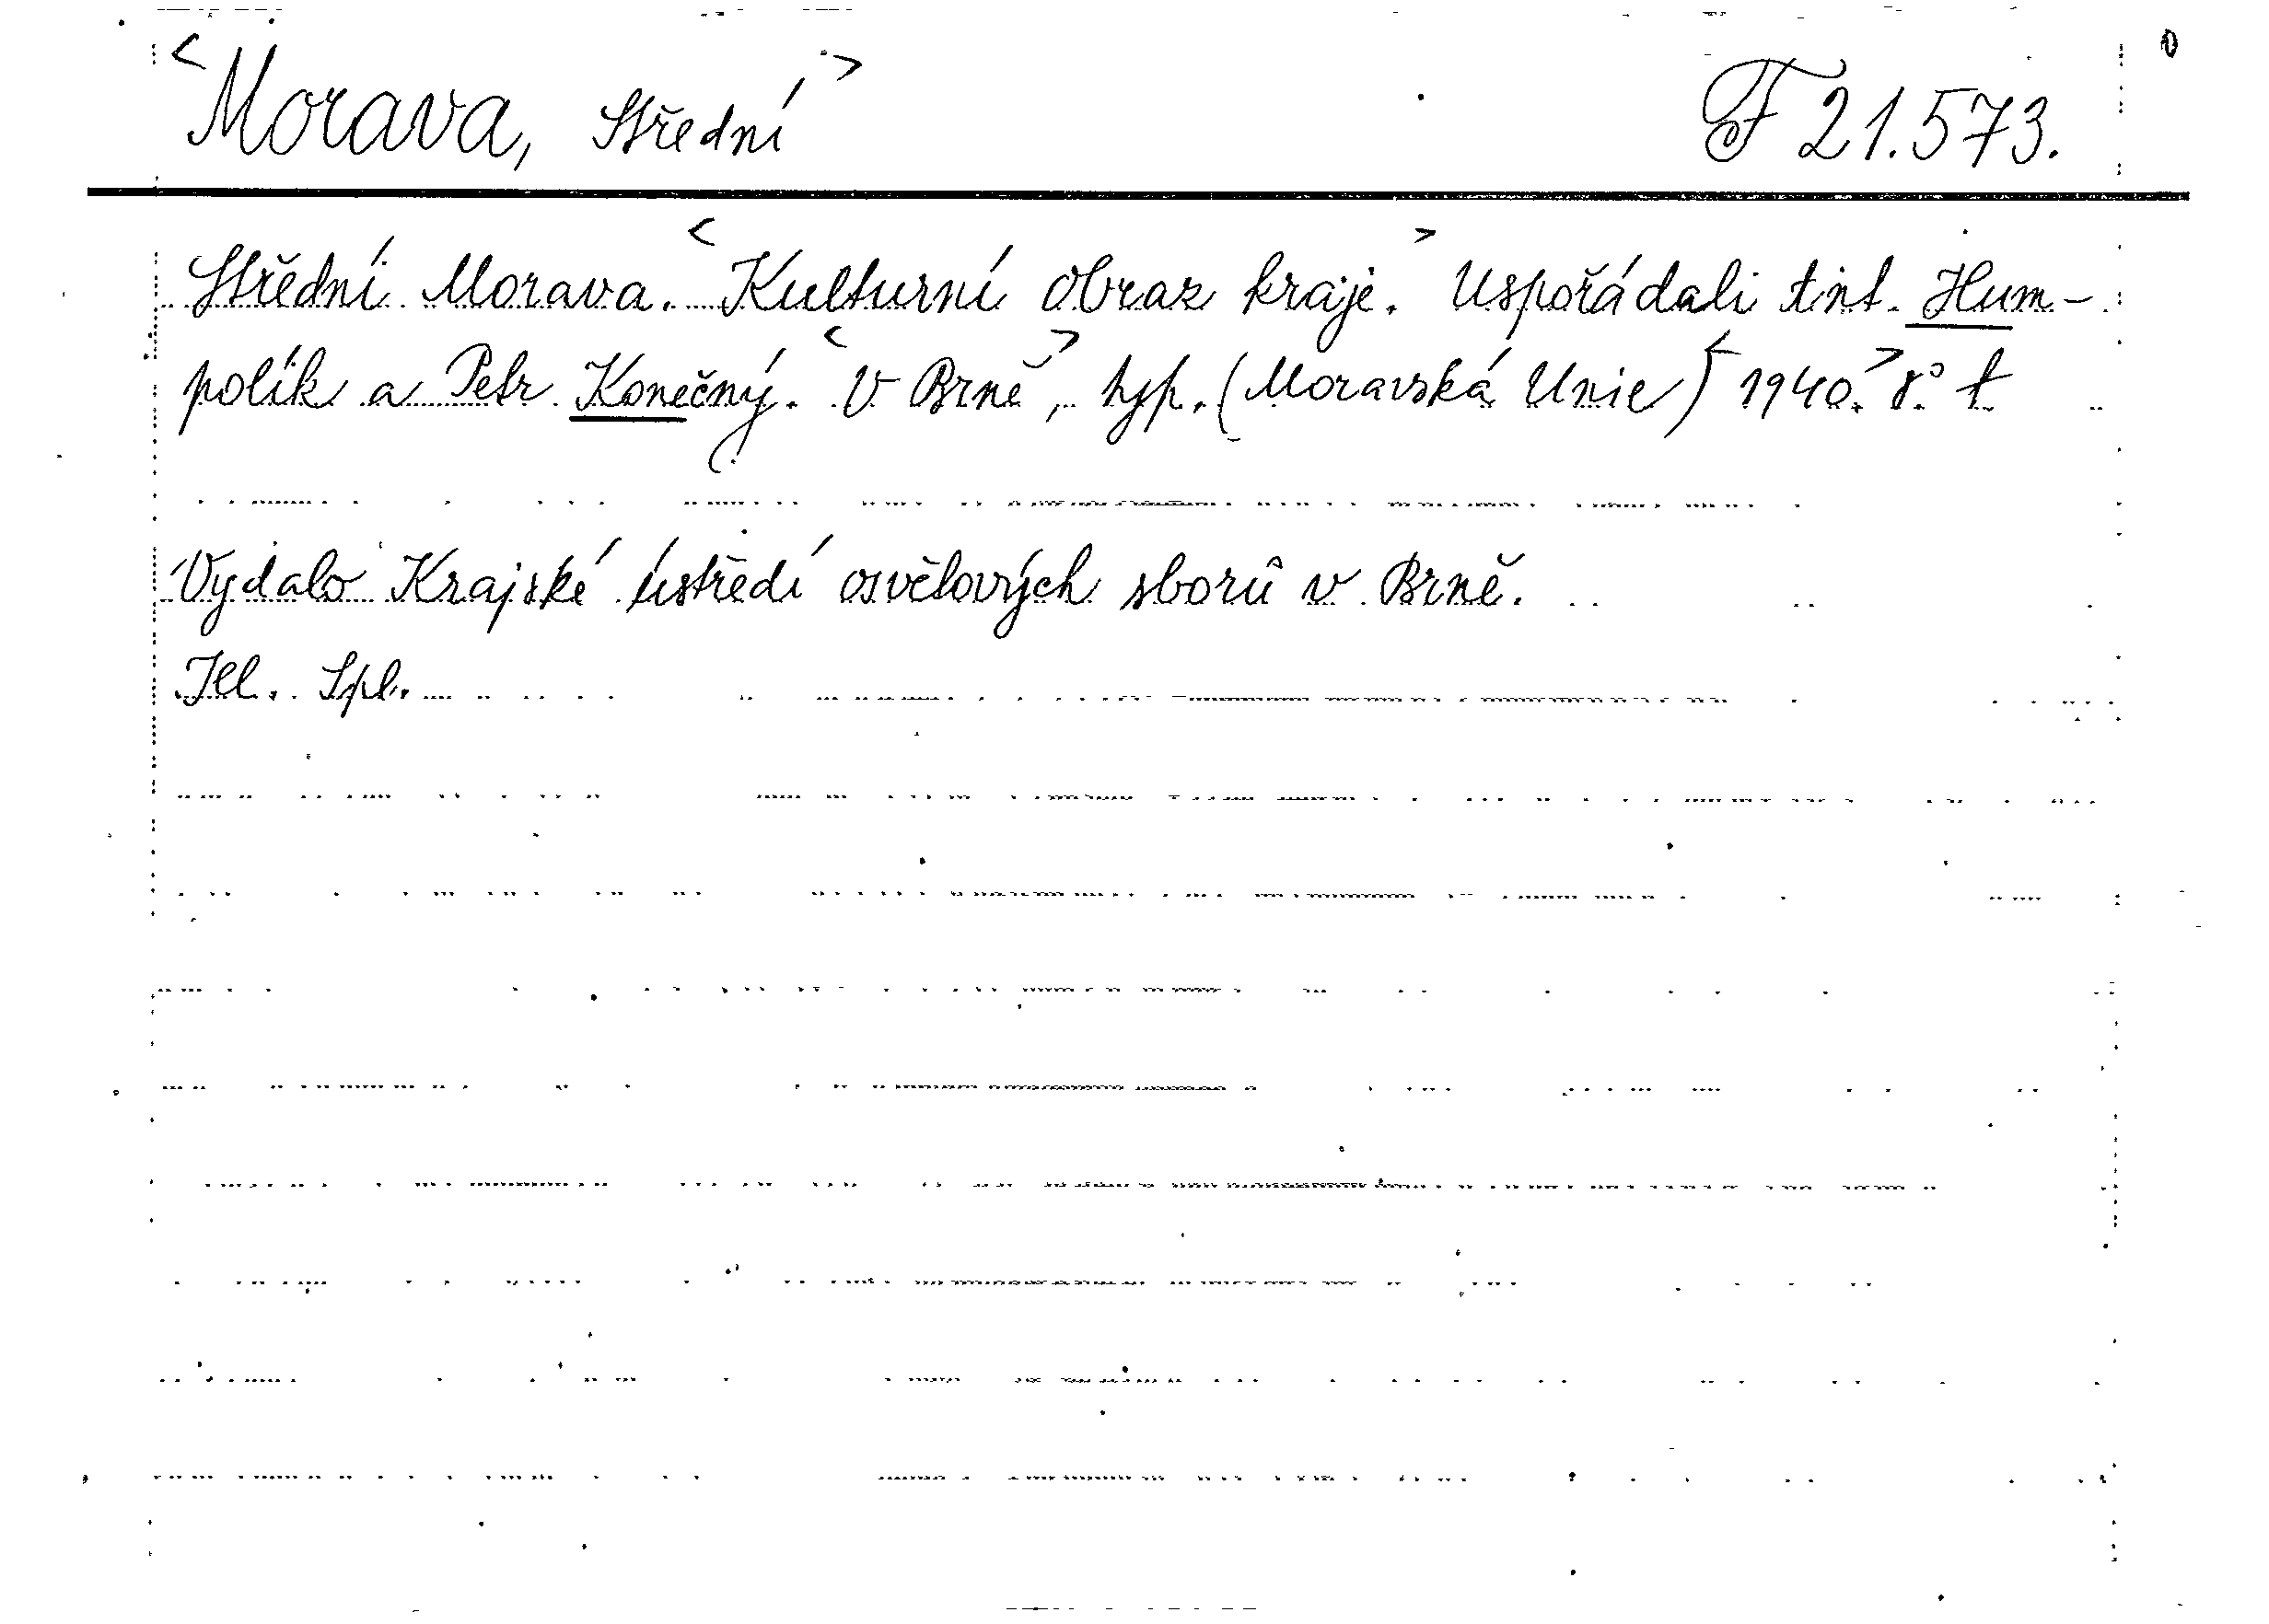 <Morava, Střední> F 21.573.
Střední Morava. <Kulturní obraz kraje.> Uspořádali Ant. Hum-
polík a Petr Konečný. <V Brně>, typ. (Moravská Unie) <1940.> 8.° t
Vydalo Krajské ústředí osvětových sborů v Brně.
Ill. Spl.